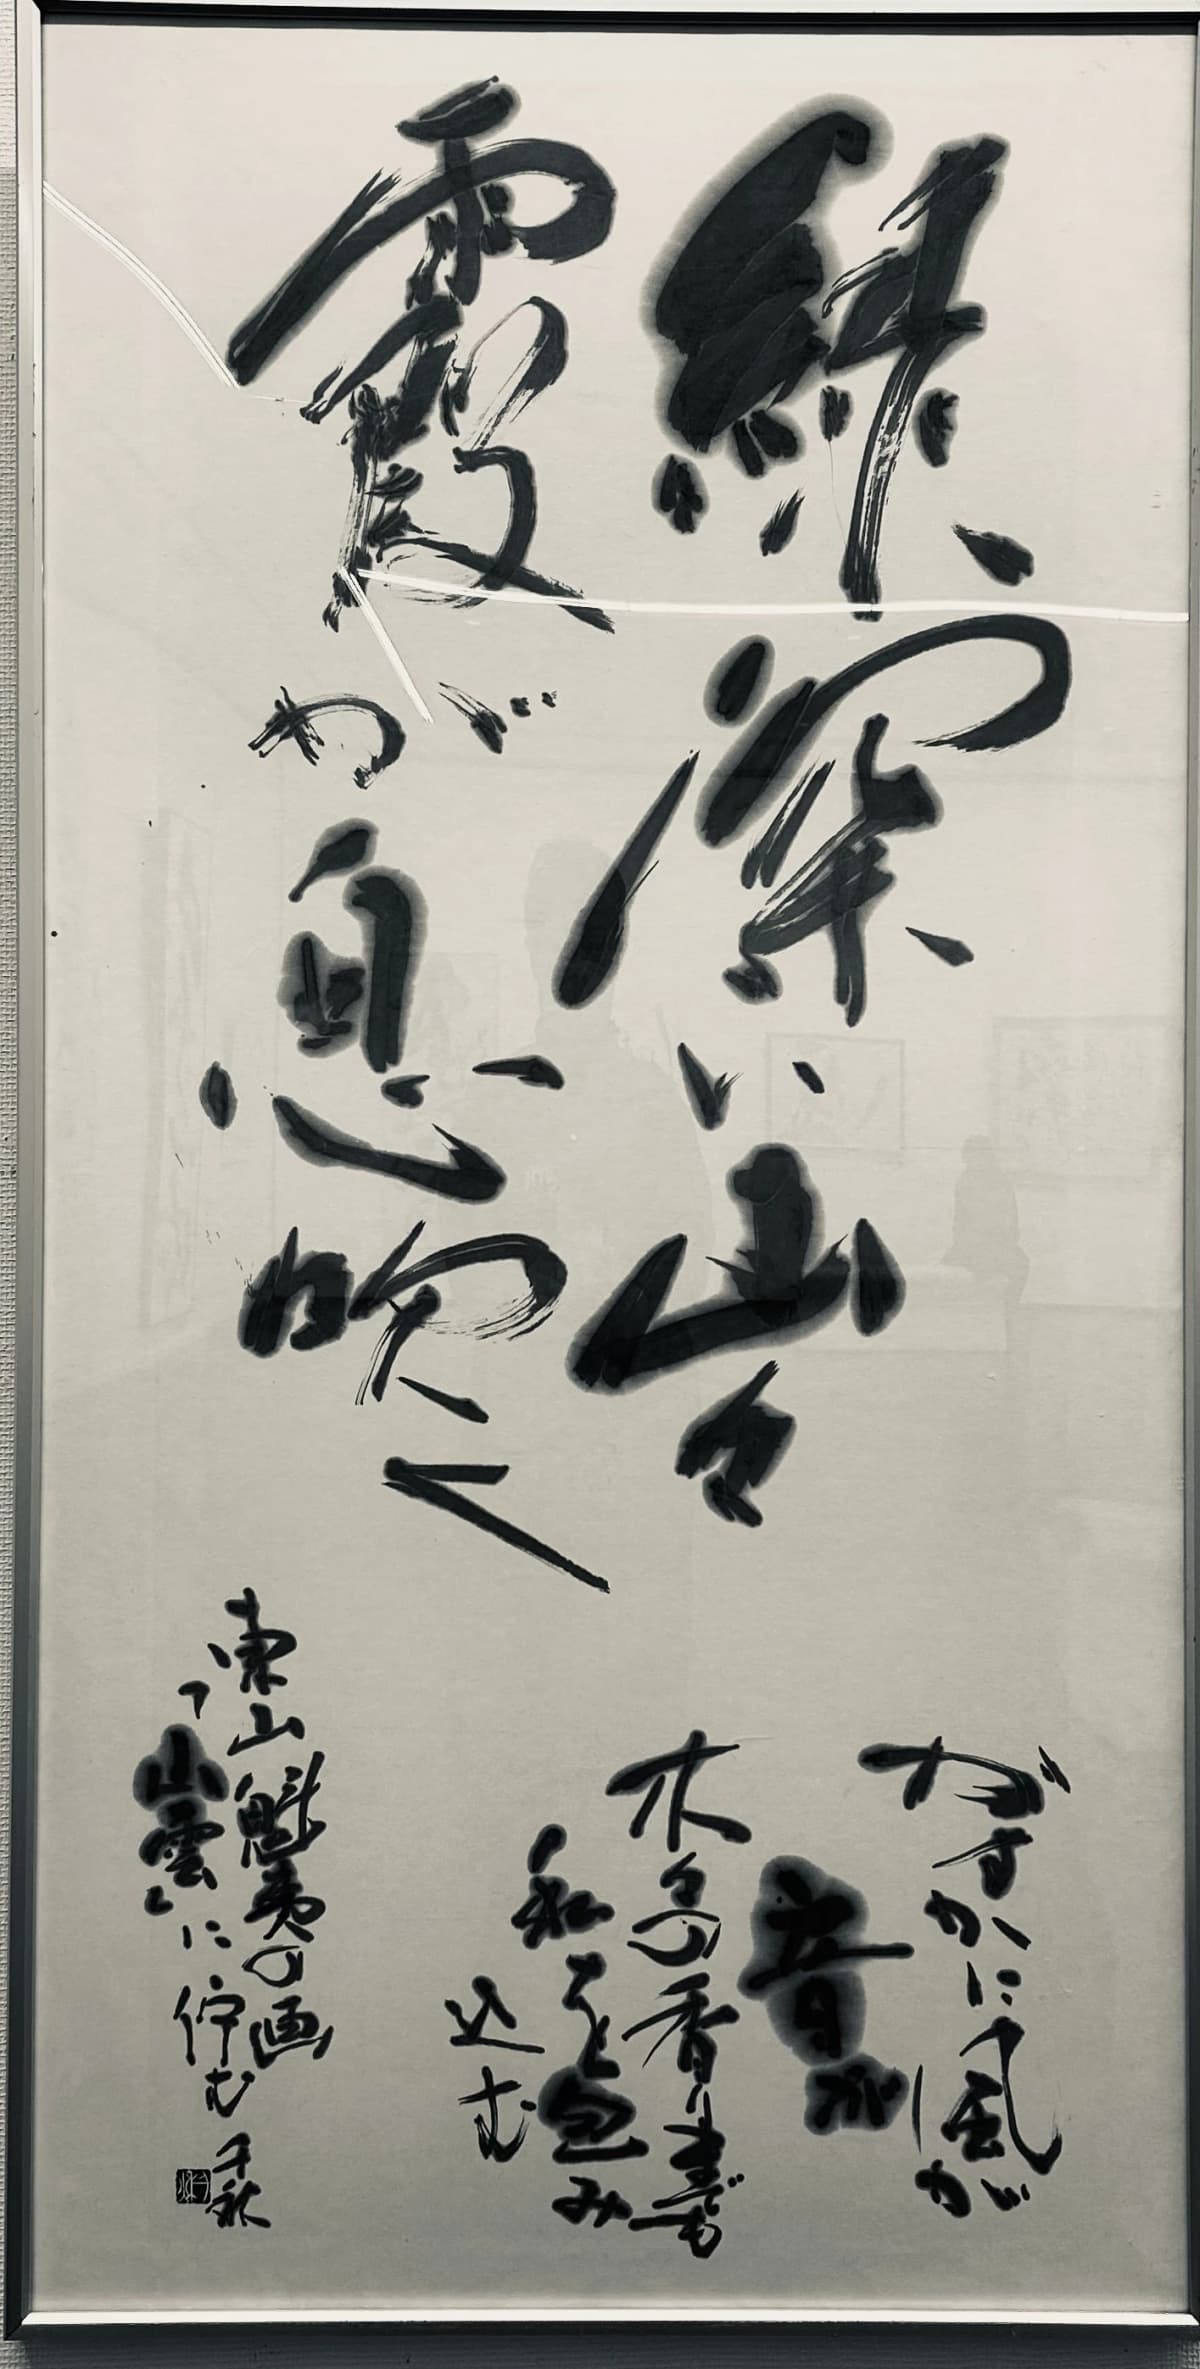 緑深い山々
霞が息吹く
かすかに風が
音が
木々の香りまでも
私を包み
込む
東山魁夷の画
「山雲」に佇む 千秋